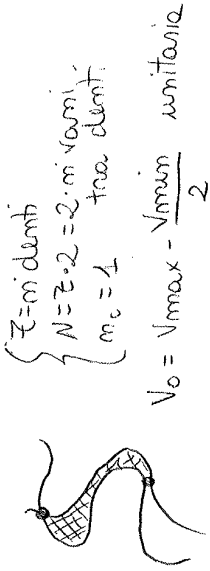 z = n° denti
N = z·2 = 2·n° vani
tra denti
n_c = 1
V_0 = Vmax - Vmin / 2 unitaria